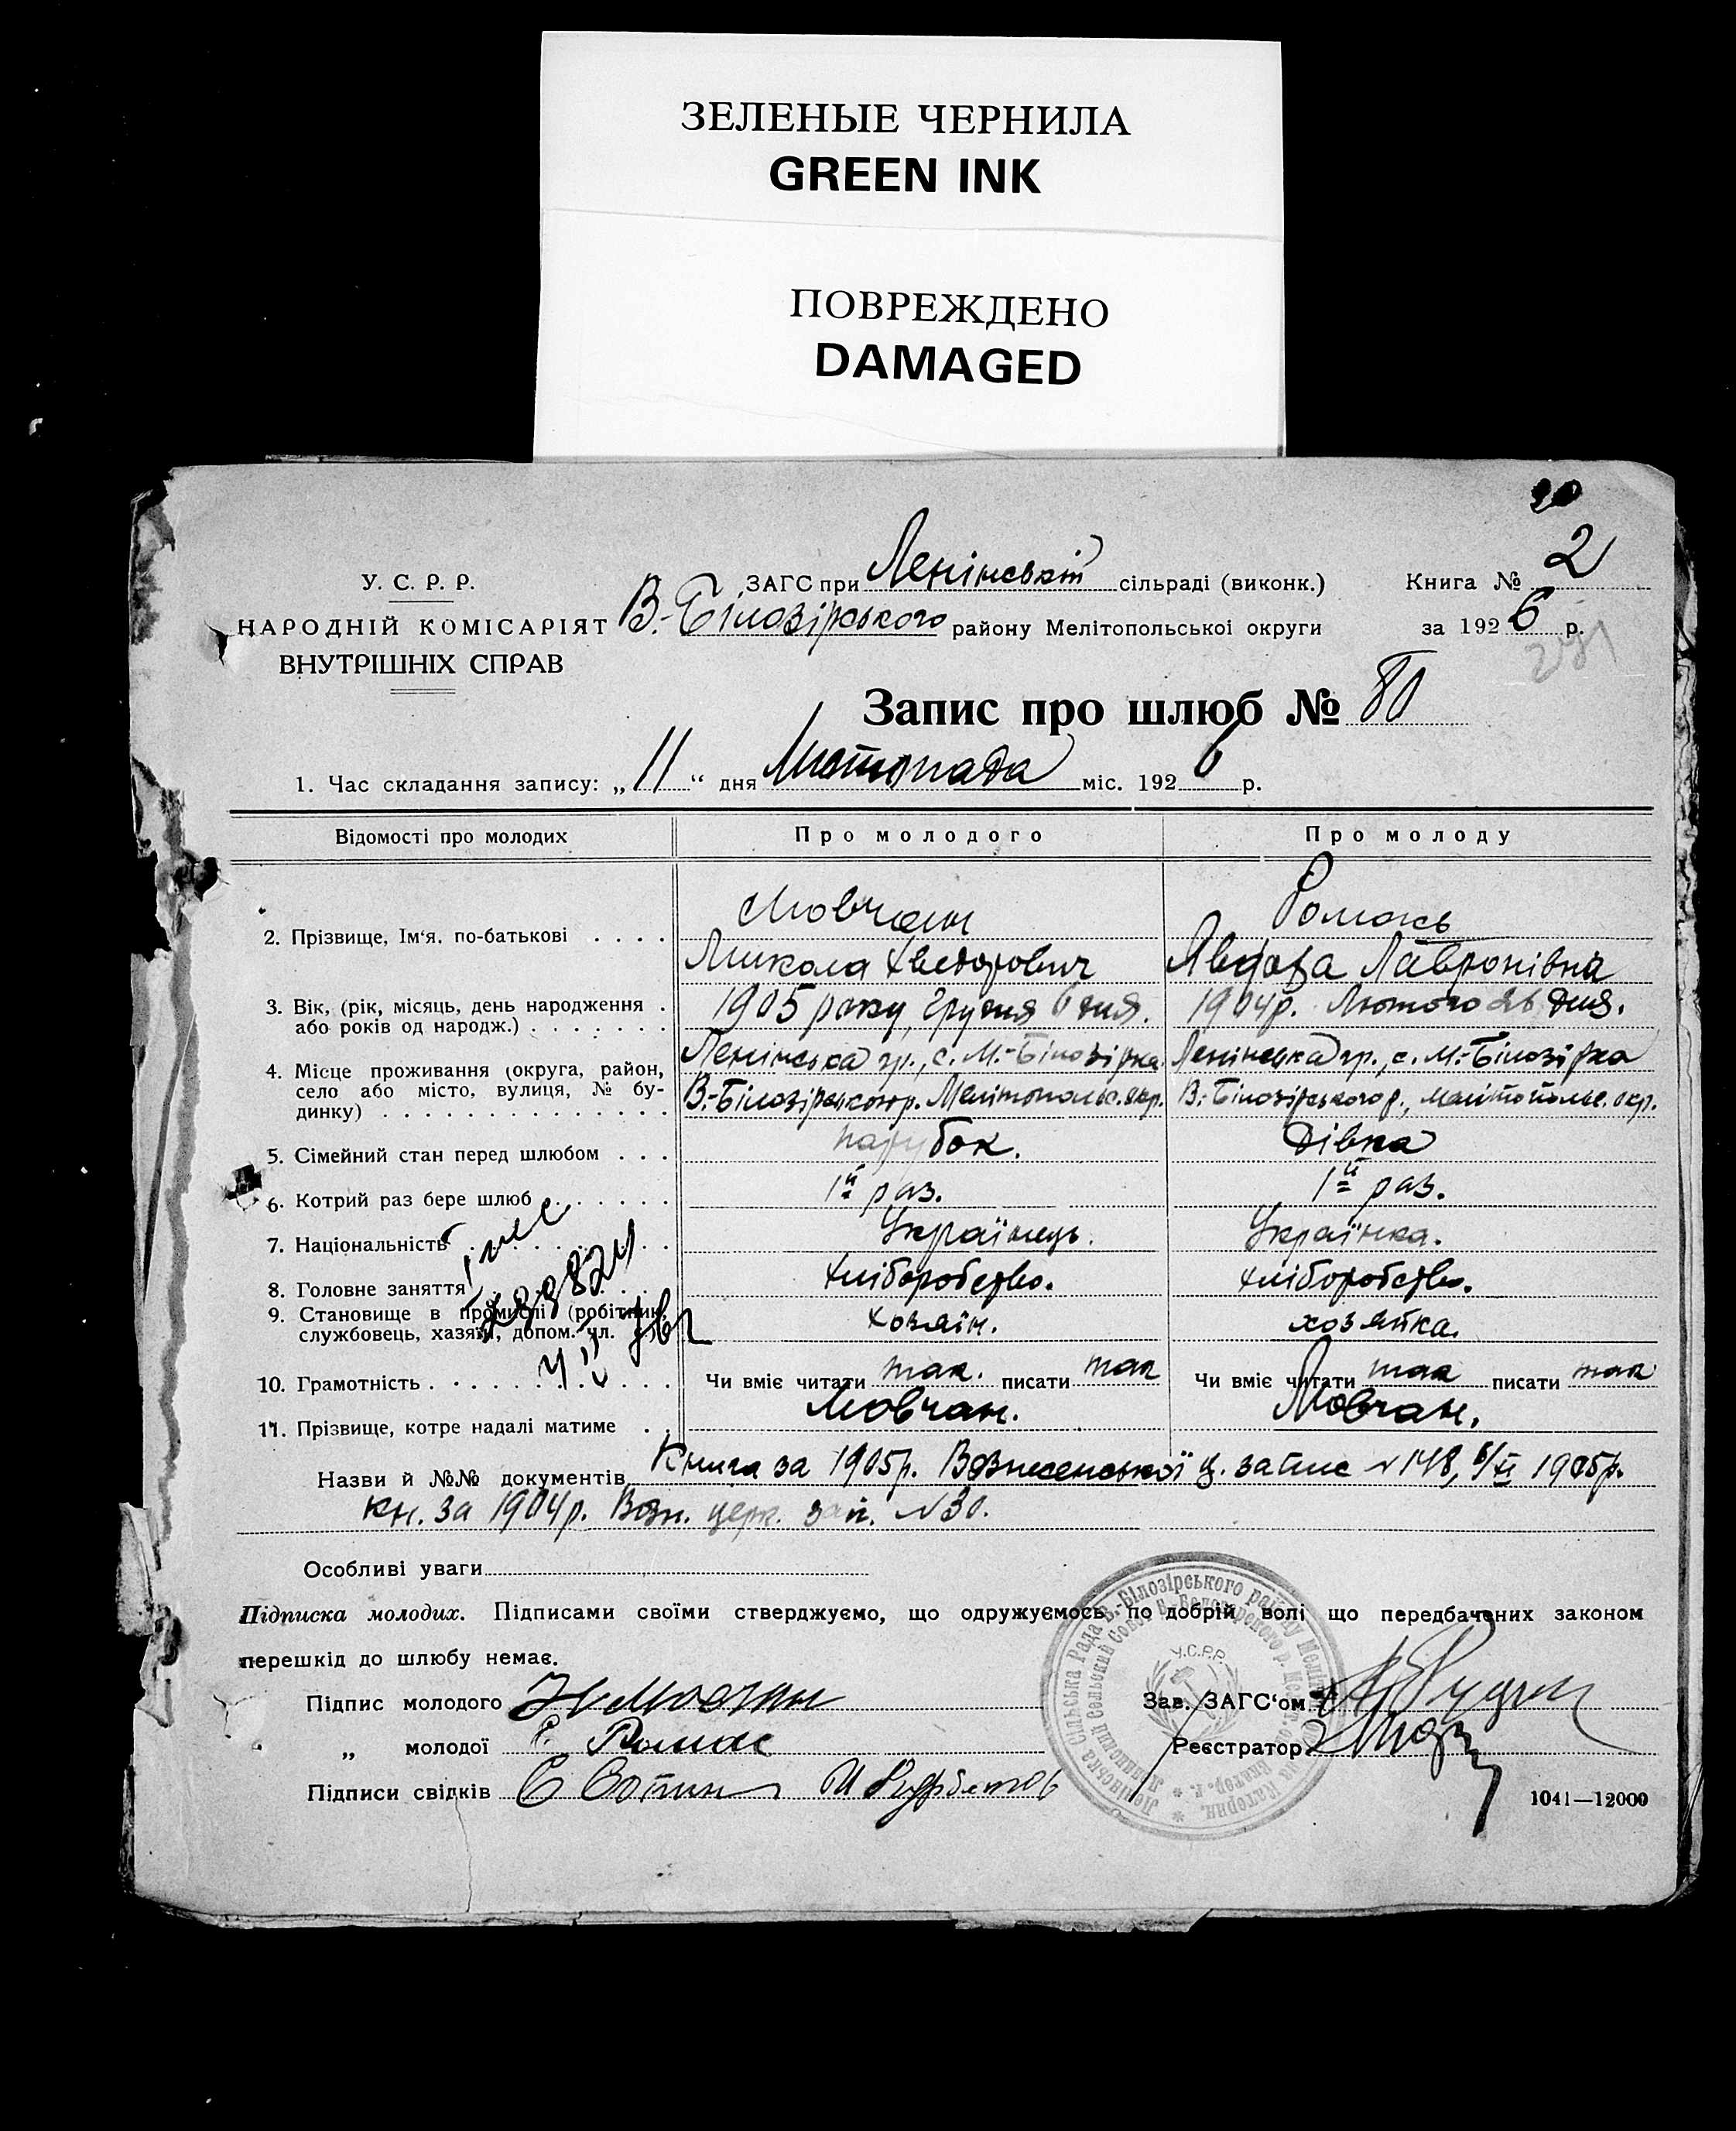 ЗЕЛЕНЫЕ ЧЕРНИЛА
GREEN INK
ПОВРЕЖДЕНО
DAMAGED
2
У. С. Р. Р. ЗАГС при Ленінській сільраді (виконк.) Книга №
НАРОДНІЙ КОМІСАРІЯТ В.-Білозірського району Мелітопольської округи за 1926 р.
ВНУТРІШНІХ СПРАВ
291
Запис про шлюб № 80
1. Час складання запису: „11“ дня Листопада міс. 1926 р.
Відомості про молодих Про молодого Про молоду
Мовчан Ромась
2. Прізвище, Ім'я, по-батькові . . . .
Микола Хведорович Явдоха Лавронівна
3. Вік, (рік, місяць, день народження . 1905 року, грудня 6 дня. 1904р. Лютого 26 дня.
або років од народж.) . . . . . . .
Ленінська гр., с. М.-Білозірка Ленінська гр., с. М.-Білозірка
4. Місце проживання (округа, район,
село або місто, вулиця, № бу- В.-Білозірського р. Мелітопольс. окр. В.-Білозірського р., мелітопольс. окр.
динку) . . . . . . . . . . . . . . .
5. Сімейний стан перед шлюбом . . . парубок. Дівка
6. Котрий раз бере шлюб . . . . . . 1й раз. 1й раз.
7. Національність . . . . . . . . . Українець. Українка.
8. Головне заняття . . . . . . . . Хліборобство. хліборобство.
9. Становище в промислі (робітник, Хозяїн. хозяйка.
службовець, хазяїн, допом. чл.
10. Грамотність . . . . . . . . . . . Чи вміє читати так. писати так Чи вміє читати так писати так
11. Прізвище, котре надалі матиме . . Мовчан. Мовчан.
Назви й №№ документів Книга за 1905р. Вознесенської ц. запис №148, 6/XII 1905р.
кн. за 1904р. Возн. церк. зап. №30.
Особливі уваги
Підписка молодих. Підписами своїми стверджуємо, що одружуємось по добрій волі що передбачених законом
перешкід до шлюбу немає.
У.С.Р.Р.
Підпис молодого Н Мовчан Зав. ЗАГС'ом
„ молодої Є. Ромас Реєстратор
Підписи свідків
1041—12000